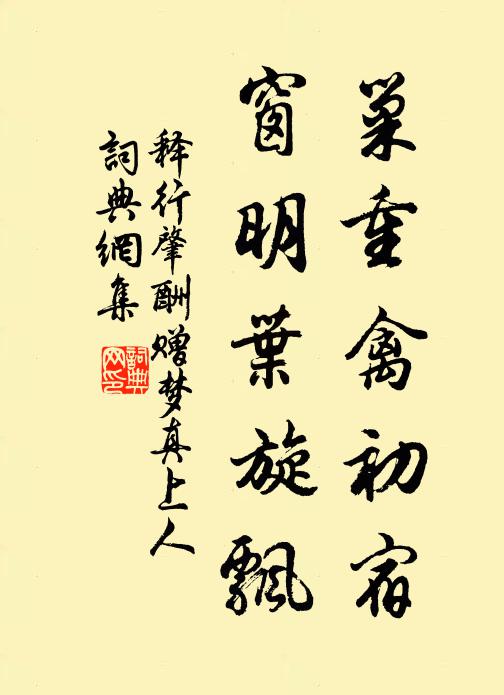 巢重禽初宿
窗明葉旋飄
释行肇酬赠梦真上人
詞典網集
詞典网印